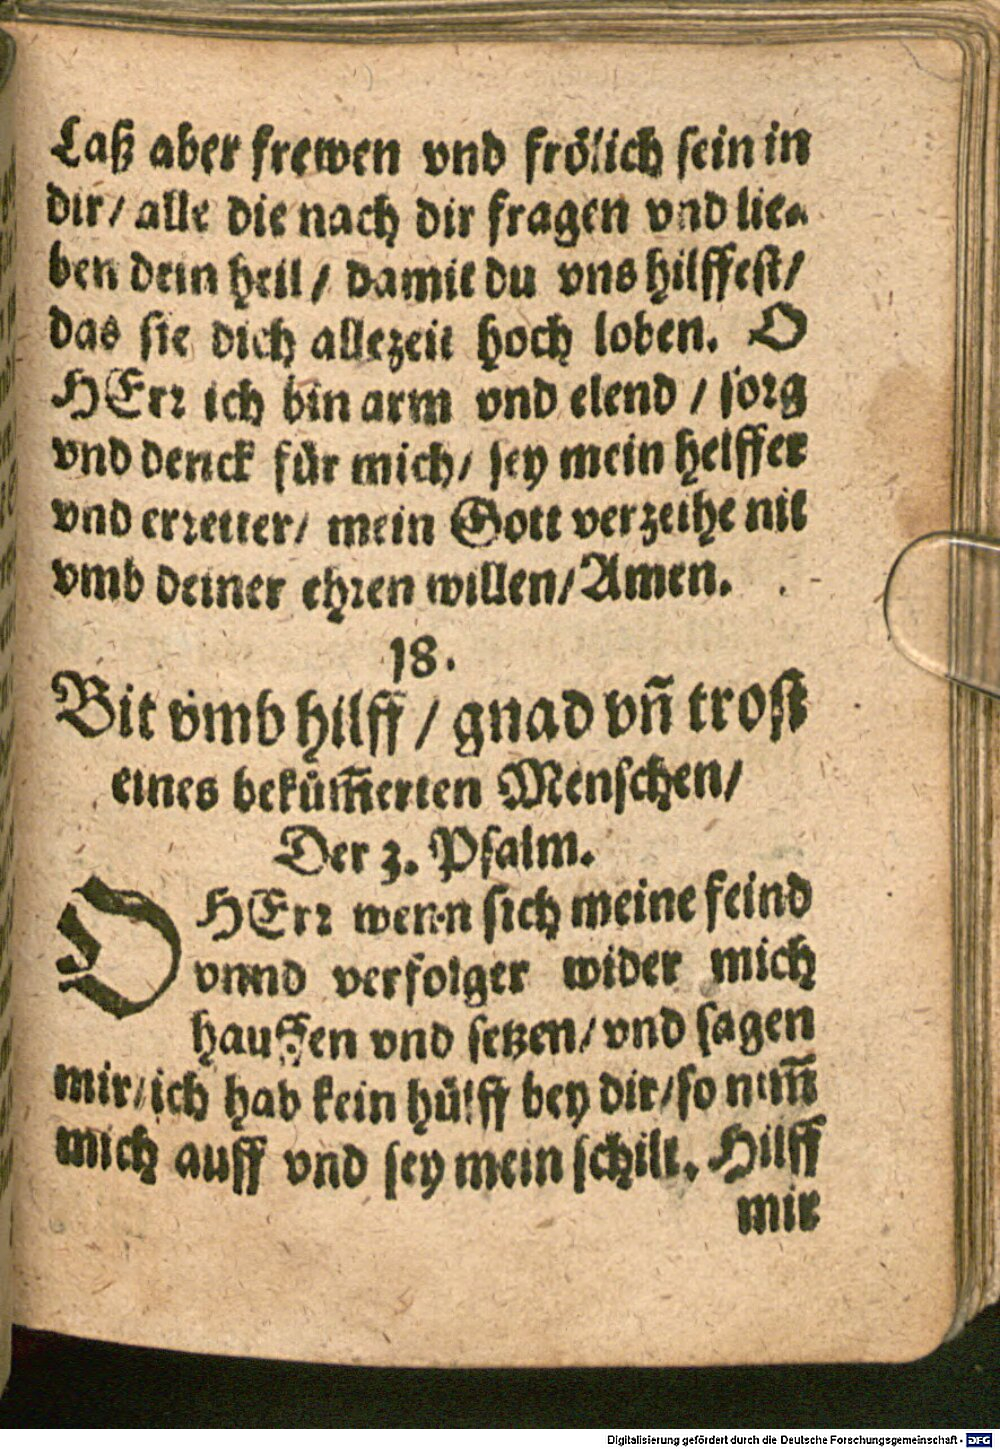 Laß aber frewen vnd frölich sein in
dir/ alle die nach dir fragen vnd lie-
ben dein heil/ damit du vns hilffest/
das sie dich allezeit hoch loben. O
HErr ich bin arm vnd elend / sorg
vnd denck für mich/ sey mein helffer
vnd erretter/ mein Gott verzeihe nit
vmb deiner ehren willen/ Amen.
18.
Bit vmb hilff / gnad vñ trost
eines bekům̃erten Menschen/
Der 3. Psalm.
O HErr wenn sich meine feind
vnnd verfolger wider mich
hauffen vnd setzen/ vnd sagen
mir/ ich hab kein hülff bey dir/ so nim̃
mich auff vnd sey mein schilt. Hilff
mir
Digitalisierung gefördert durch die Deutsche Forschungsgemeinschaft - DFG